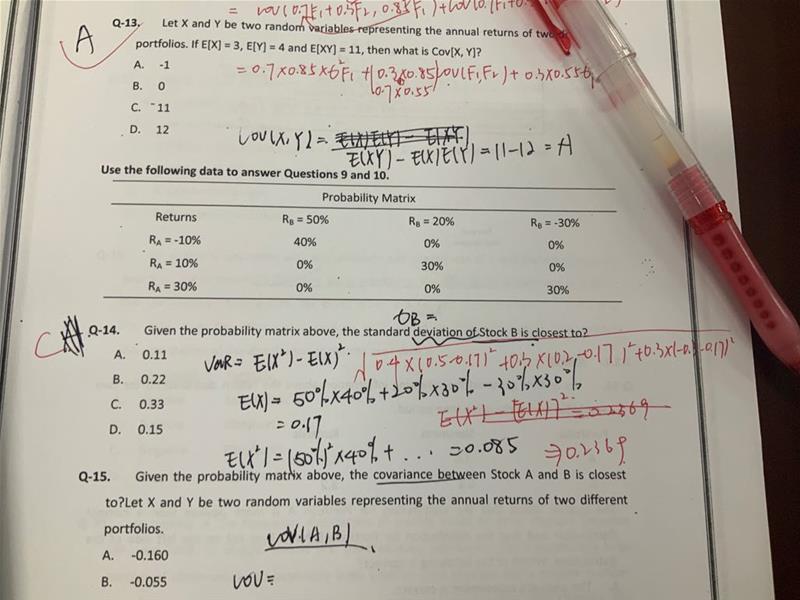 = COV(0.7F₁+0.3F₂, 0.85F₁)+COV(0.7F₁+0.3
A
Q-13. Let X and Y be two random variables representing the annual returns of two
portfolios. If E[X] = 3, E[Y] = 4 and E[XY] = 11, then what is Cov[X, Y]?
A. -1
= 0.7×0.85×6²F₁ + (0.3×0.85)COV(F₁,F₂) + 0.3×0.55
0.7×0.55
B. 0
C. -11
D. 12
COV(X,Y) = E(X)E(Y) - E(XY)
E(XY) - E(X)E(Y) = 11-12 = A
Use the following data to answer Questions 9 and 10.
Probability Matrix
Returns R_B = 50% R_B = 20% R_B = -30%
R_A = -10% 40% 0% 0%
R_A = 10% 0% 30% 0%
R_A = 30% 0% 0% 30%
σB =
C A Q-14. Given the probability matrix above, the standard deviation of Stock B is closest to?
A. 0.11
VaR = E(X²) - E(X)². √0.4×(0.5-0.17)²+0.3×(0.2-0.17)²+0.3×(-0.3-0.17)²
B. 0.22
E(X) = 50%×40%+20%×30% - 30%×30%
C. 0.33
= 0.17
E(X²) - [E(X)]² = 0.2369
D. 0.15
E(X²) = (50%)²×40% + ... = 0.085 ⇒ 0.2369
Q-15. Given the probability matrix above, the covariance between Stock A and B is closest
to?Let X and Y be two random variables representing the annual returns of two different
portfolios.
COV(A,B)
A. -0.160
B. -0.055
COV=